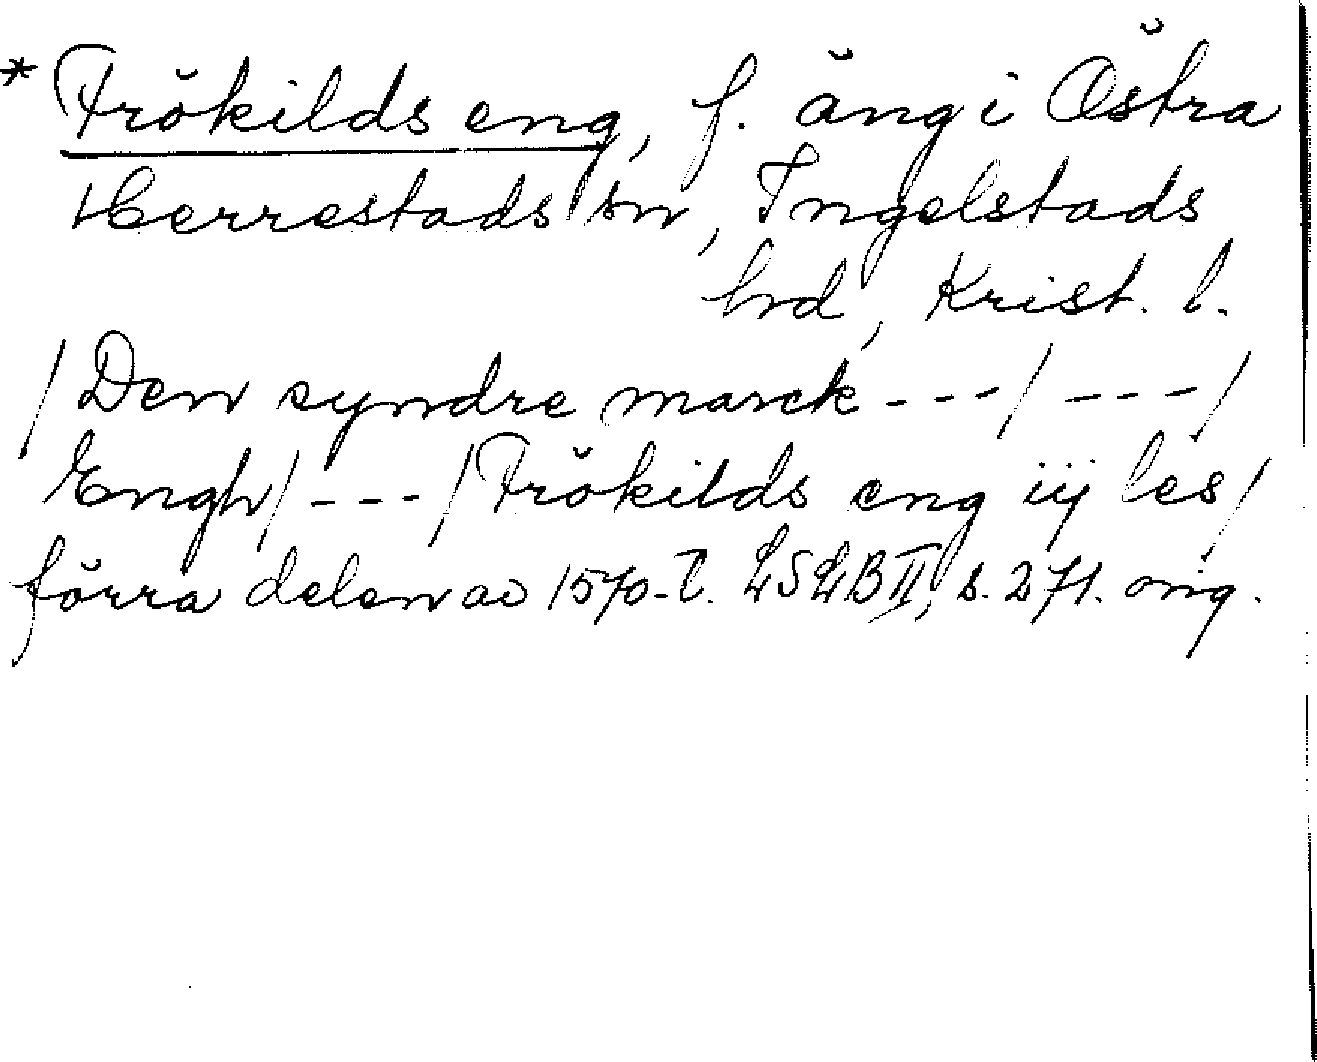 * Frökilds eng, f. äng i Östra
Herrestads sn, Ingelstads
hd, Krist. l.
/Den syndre marck---/ ---/
Engh/---/Frökilds eng iij les/
förra delen av 1570-t. LSLB II, s. 271. orig.